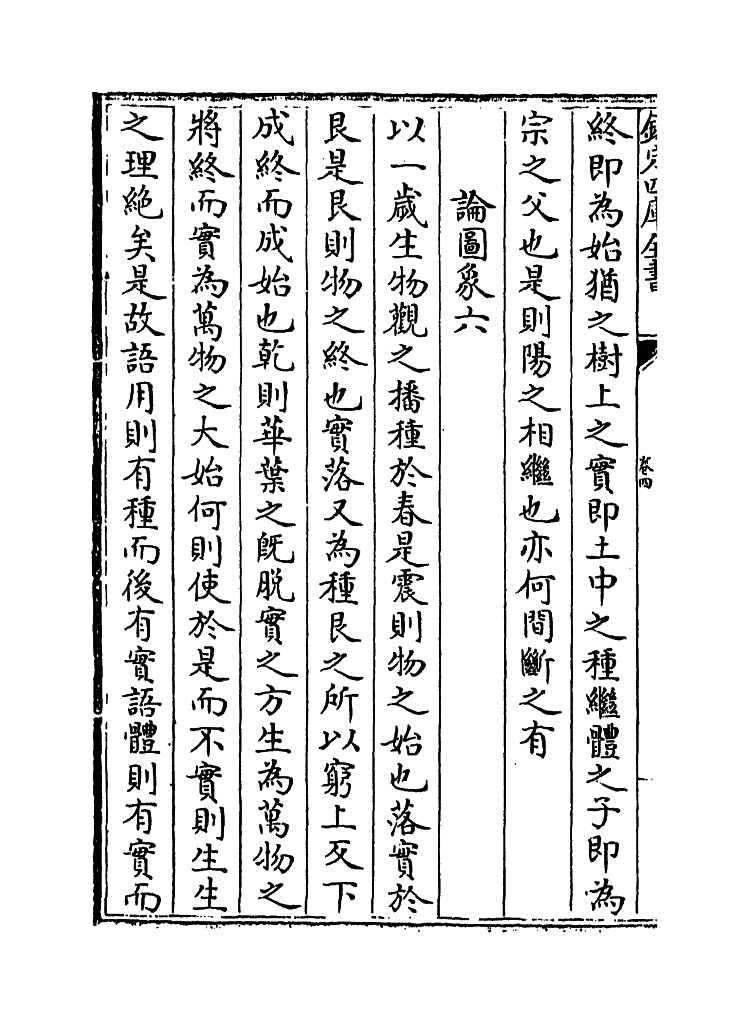 欽定四庫全書
卷四
終即為始猶之樹上之實即土中之種繼體之子即為
宗之父也是則陽之相繼也亦何間斷之有
論圖象六
以一歲生物觀之播種於春是震則物之始也落實於
艮是艮則物之終也實落又為種艮之所以窮上反下
成終而成始也乾則華葉之旣脱實之方生為萬物之
將終而實為萬物之大始何則使於是而不實則生生
之理絶矣是故語用則有種而後有實語體則有實而